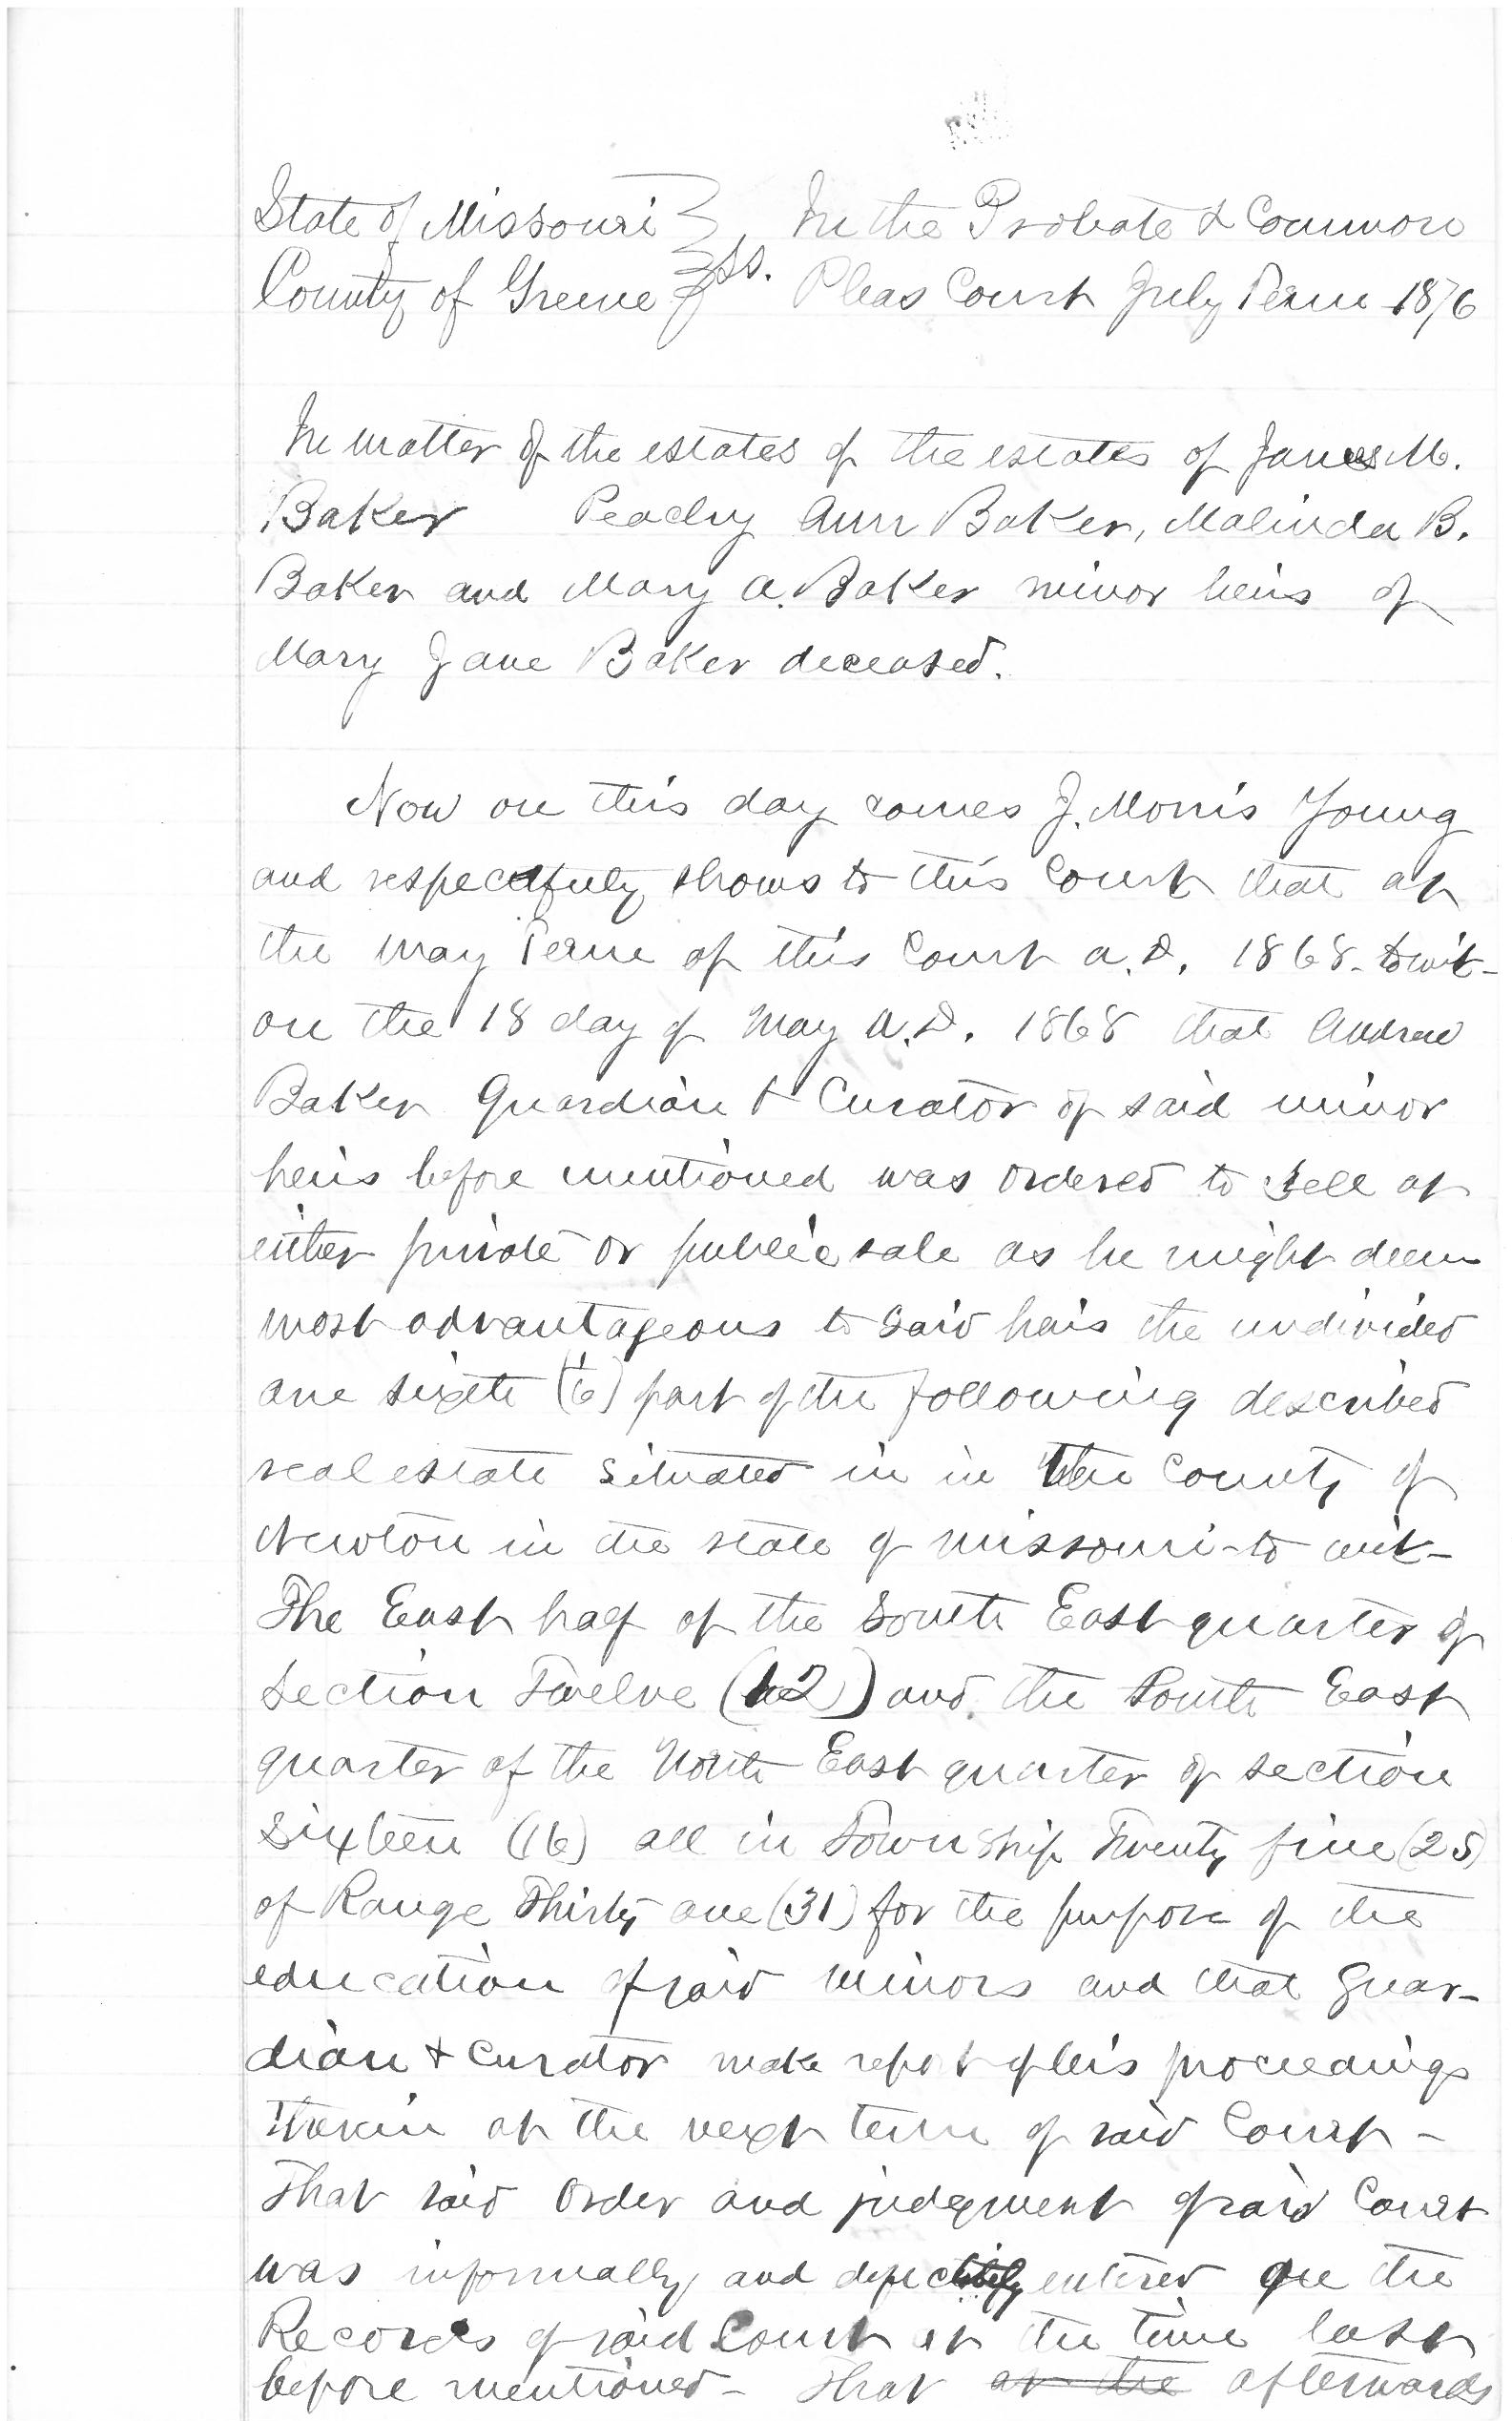 State of Missouri } ss. In the Probate & Common
County of Greene } Pleas Court July Term 1876
In matter of the estates of the estates of James M.
Baker Peachy Ann Baker, Malinda B.
Baker and Mary A. Baker minor heirs of
Mary Jane Baker deceased.
Now on this day comes J. Morris Young
and respectfuly shows to this Court that at
the May Term of this Court A.D. 1868. towit-
on the 18 day of May A.D. 1868 that Andrew
Baker Guardian & Curator of said minor
heirs before mentioned was ordered to sell at
either private or public sale as he might deem
most advantageous to said heirs the undivided
one sixth (1/6) part of the following described
real estate situated in in the County of
Newton in the state of Missouri - to wit -
The East half of the South East quarter of
Section Twelve (12) and the South East
quarter of the North East quarter of section
Sixteen (16) all in Township Twenty five (25)
of Range Thirty one (31) for the purpose of the
education of said minors and that Guar-
dian & Curator make report of his proceedings
therein at the next term of said Court -
That said Order and judgment of said Court
was informally and defectively entered on the
Records of said Court at the time last
before mentioned - That at the afterwards